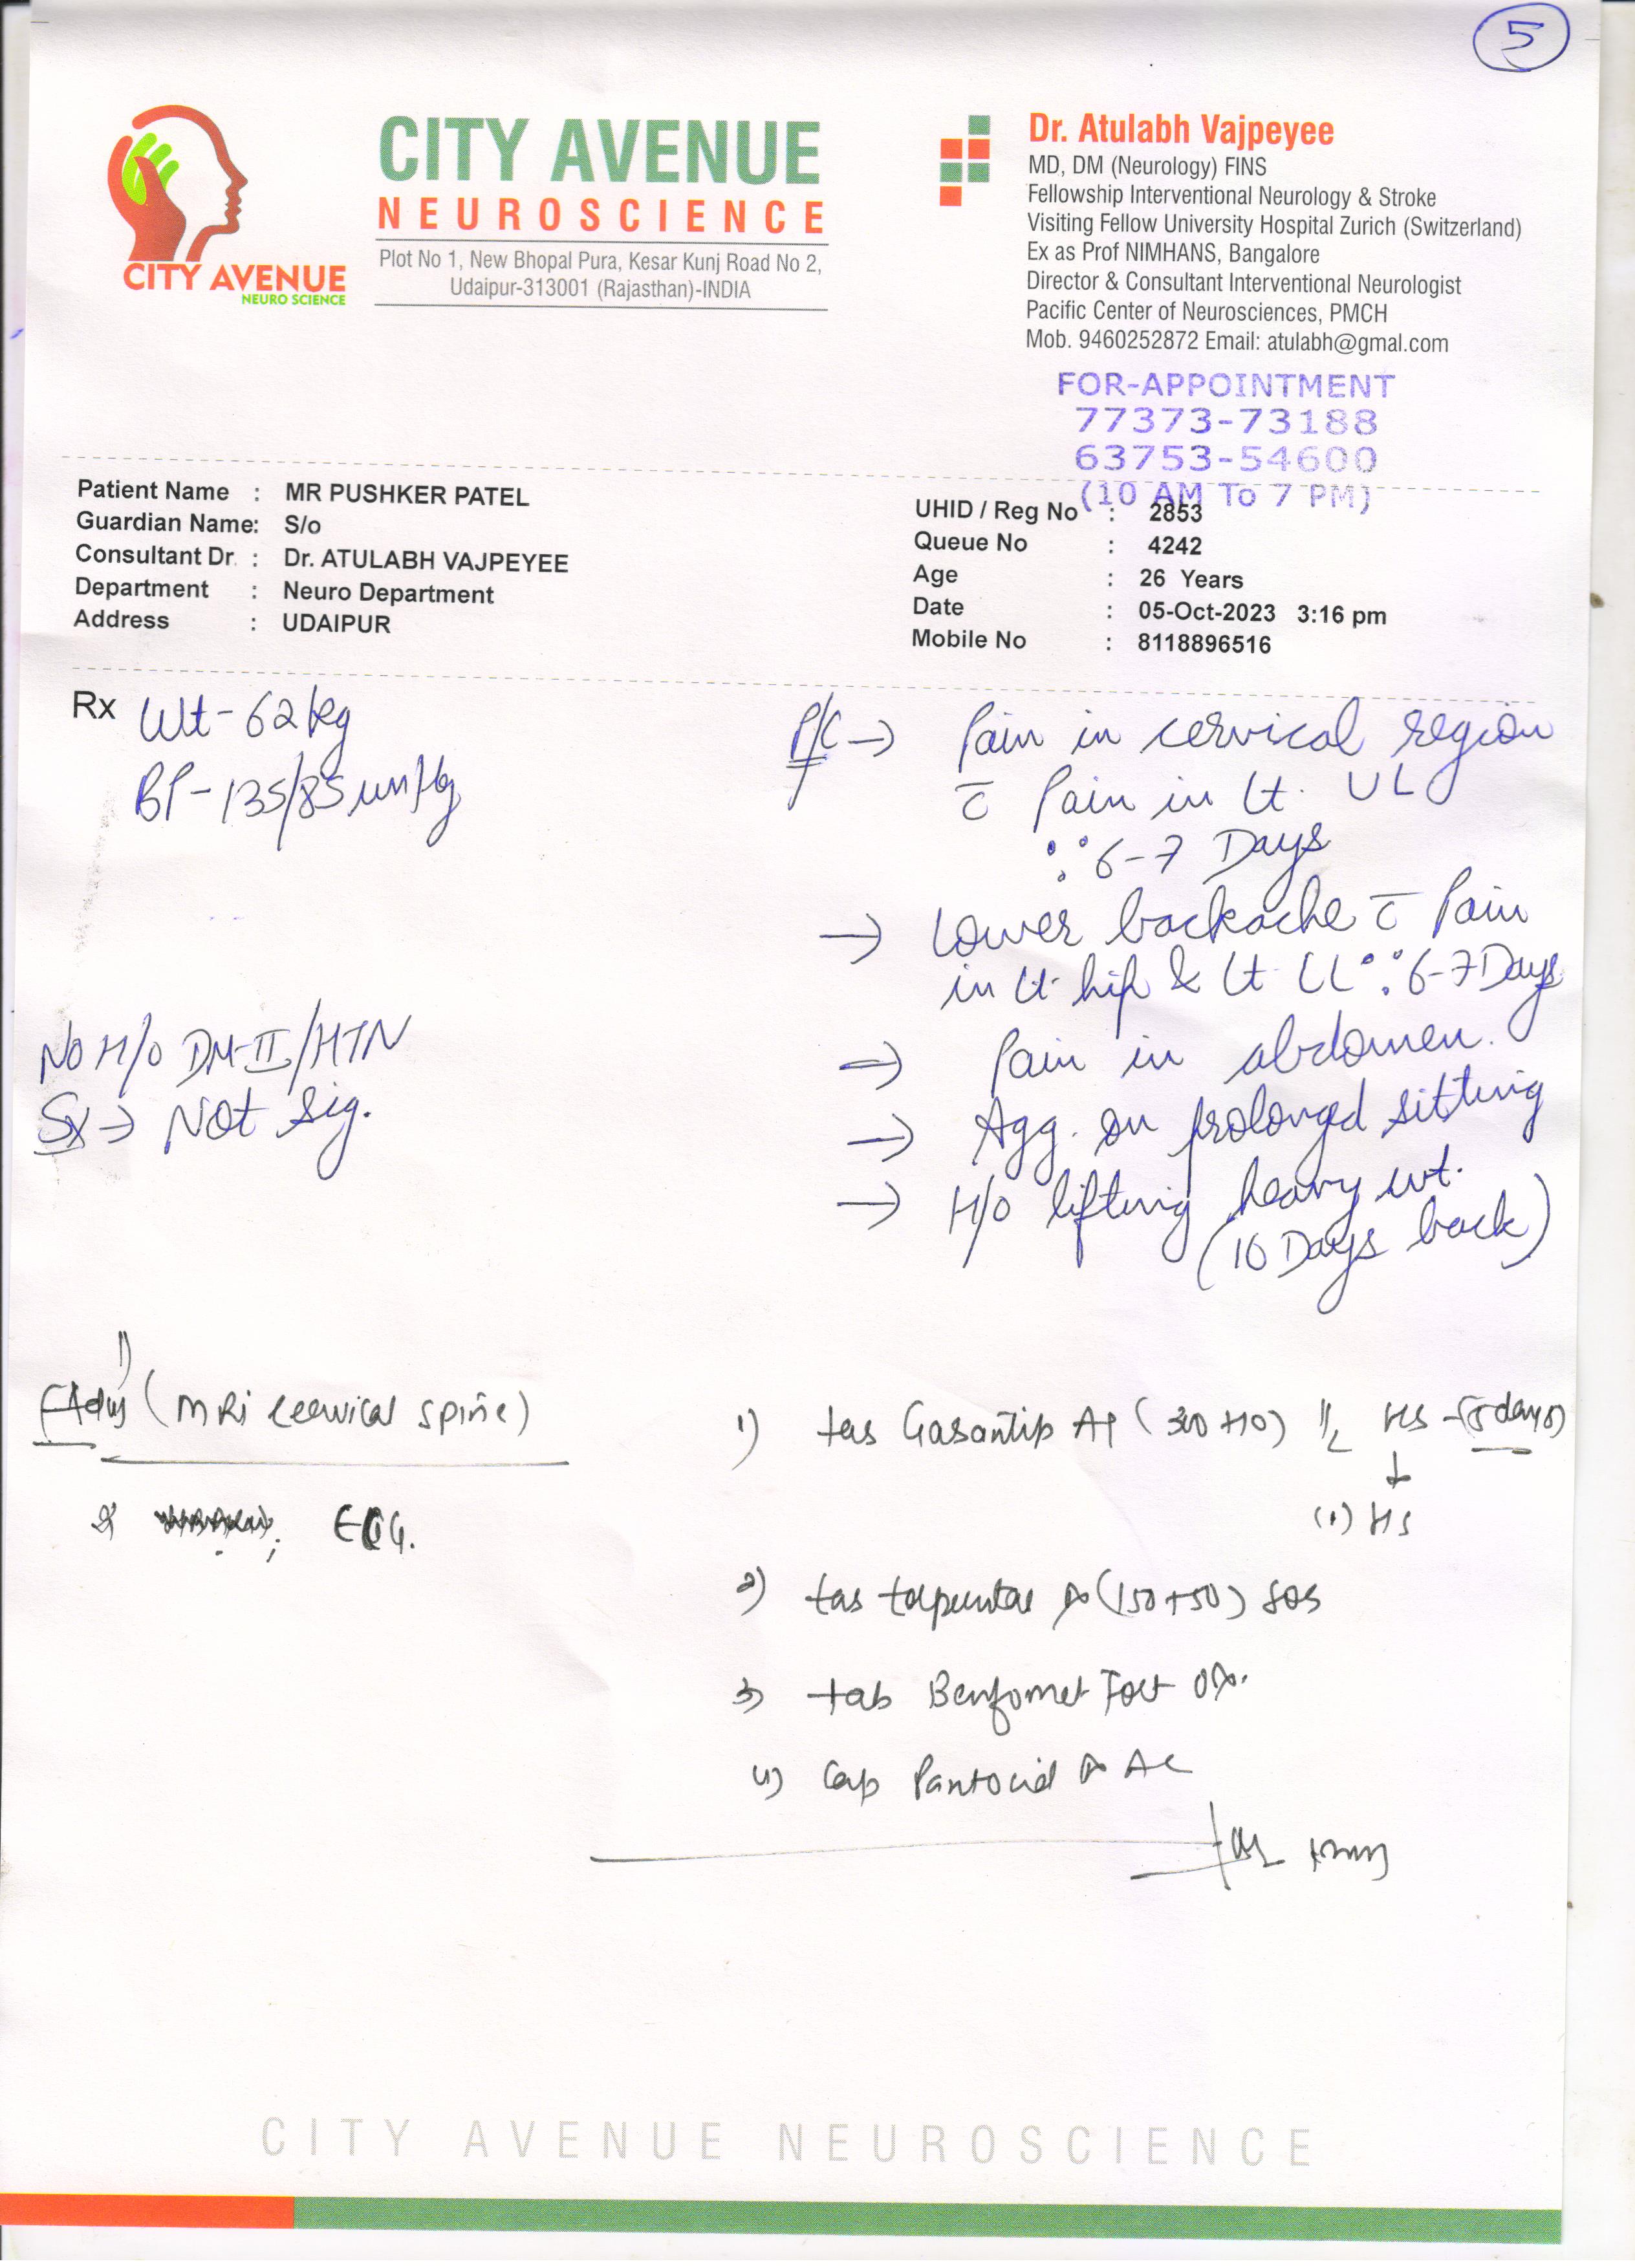 5
CITY AVENUE
NEURO SCIENCE
CITY AVENUE
NEUROSCIENCE
Plot No 1, New Bhopal Pura, Kesar Kunj Road No 2,
Udaipur-313001 (Rajasthan)-INDIA
Dr. Atulabh Vajpeyee
MD, DM (Neurology) FINS
Fellowship Interventional Neurology & Stroke
Visiting Fellow University Hospital Zurich (Switzerland)
Ex as Prof NIMHANS, Bangalore
Director & Consultant Interventional Neurologist
Pacific Center of Neurosciences, PMCH
Mob. 9460252872 Email: atulabh@gmal.com
FOR-APPOINTMENT
77373-73188
63753-54600
(10 AM To 7 PM)
Patient Name : MR PUSHKER PATEL
Guardian Name: S/o
Consultant Dr. : Dr. ATULABH VAJPEYEE
Department : Neuro Department
Address : UDAIPUR
UHID / Reg No : 2853
Queue No : 4242
Age : 26 Years
Date : 05-Oct-2023 3:16 pm
Mobile No : 8118896516
Rx Wt- 62kg
BP-135/85 mmHg
No H/o DM-II/HTN
Sx → Not sig.
P/C → Pain in cervical region
c̄ Pain in Lt. UL
6-7 Days
→ Lower backache c̄ Pain
in Lt. hip & Lt. LL 6-7 Days
→ Pain in abdomen.
→ Agg. on prolonged sitting
→ H/o lifting heavy wt.
(10 Days back)
1)
(MRI cervical spine)
ECG.
1) tab Gabantip AT (300+10) 1/2 HS - (5 days)
↓
(1) HS
2) tab (150+50) SOS
3) tab Benfomet Fort
4) Cap Pantocid AC
CITY AVENUE NEUROSCIENCE